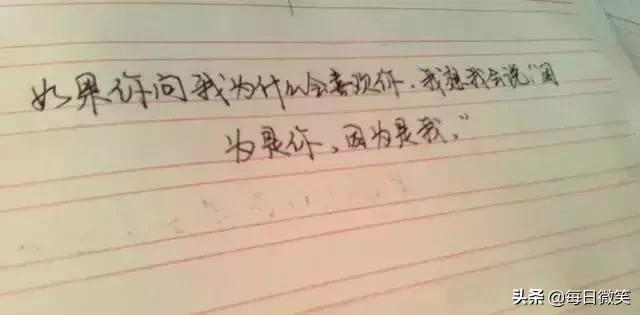 如果你问我为什么会喜欢你，我想我会说"因
为是你，因为是我。"
头条 @每日微笑